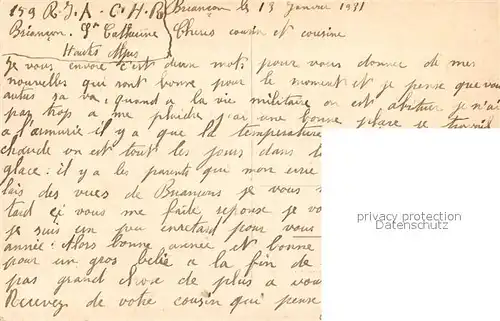 159 R.I.A - C.H.R Briançon le 13 Janvier 1931
Briançon. Ste Catherine Cheres cousin et cousine
Hautes Alpes
Je vous envoie c'est deux mots pour vous donner de mes
nouvelles qui sont bonne pour le moment et je pense que vous
autres sa va; quand a la vie militaire on est abituer je n'ai
pas trop a me plaidre car une bonne place je travail
a l'armurie il y a que la température
chaude on est tout les jours dans la
glace: il y a les parents qui mon
lais des vues de Briançons je vous
tard çi vous me faite reponse je
je suis un peu enretard pour vous
année. Alors bonne année et bonne
pour un gros a la fin de
pas grand chose de plus a
Recevez de votre cousin qui pense
privacy protection
Datenschutz